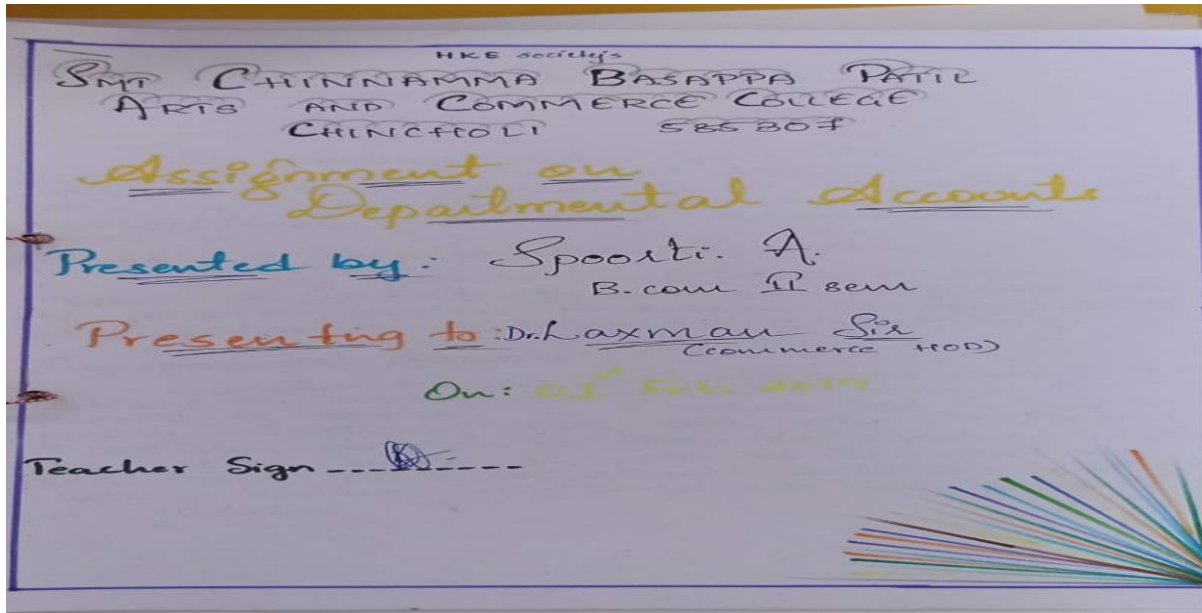 HKE society's
SMT CHINNAMMA BASAPPA PATIL
ARTS AND COMMERCE COLLEGE
CHINCHOLI 585307
Assignment on
Departmental Accounts
Presented by: Spoorti. A.
B.com II sem
Presenting to: Dr. Laxman Sir
(commerce HOD)
On: 01st Feb
Teacher Sign